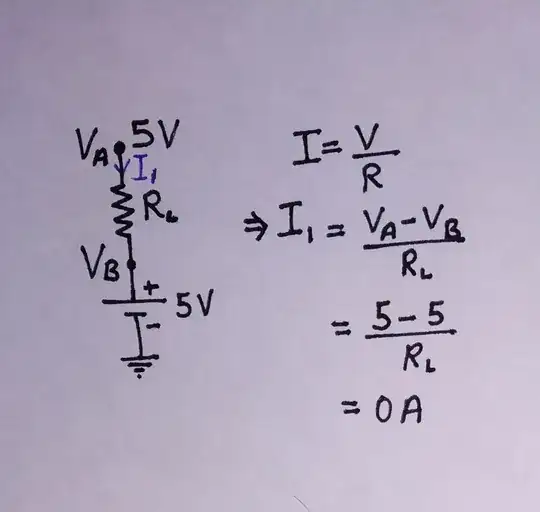 V_A 5V
I₁
R_L
V_B
+
5V
-
I = V/R
⇒ I₁ = (V_A - V_B)/R_L
= (5 - 5)/R_L
= 0A